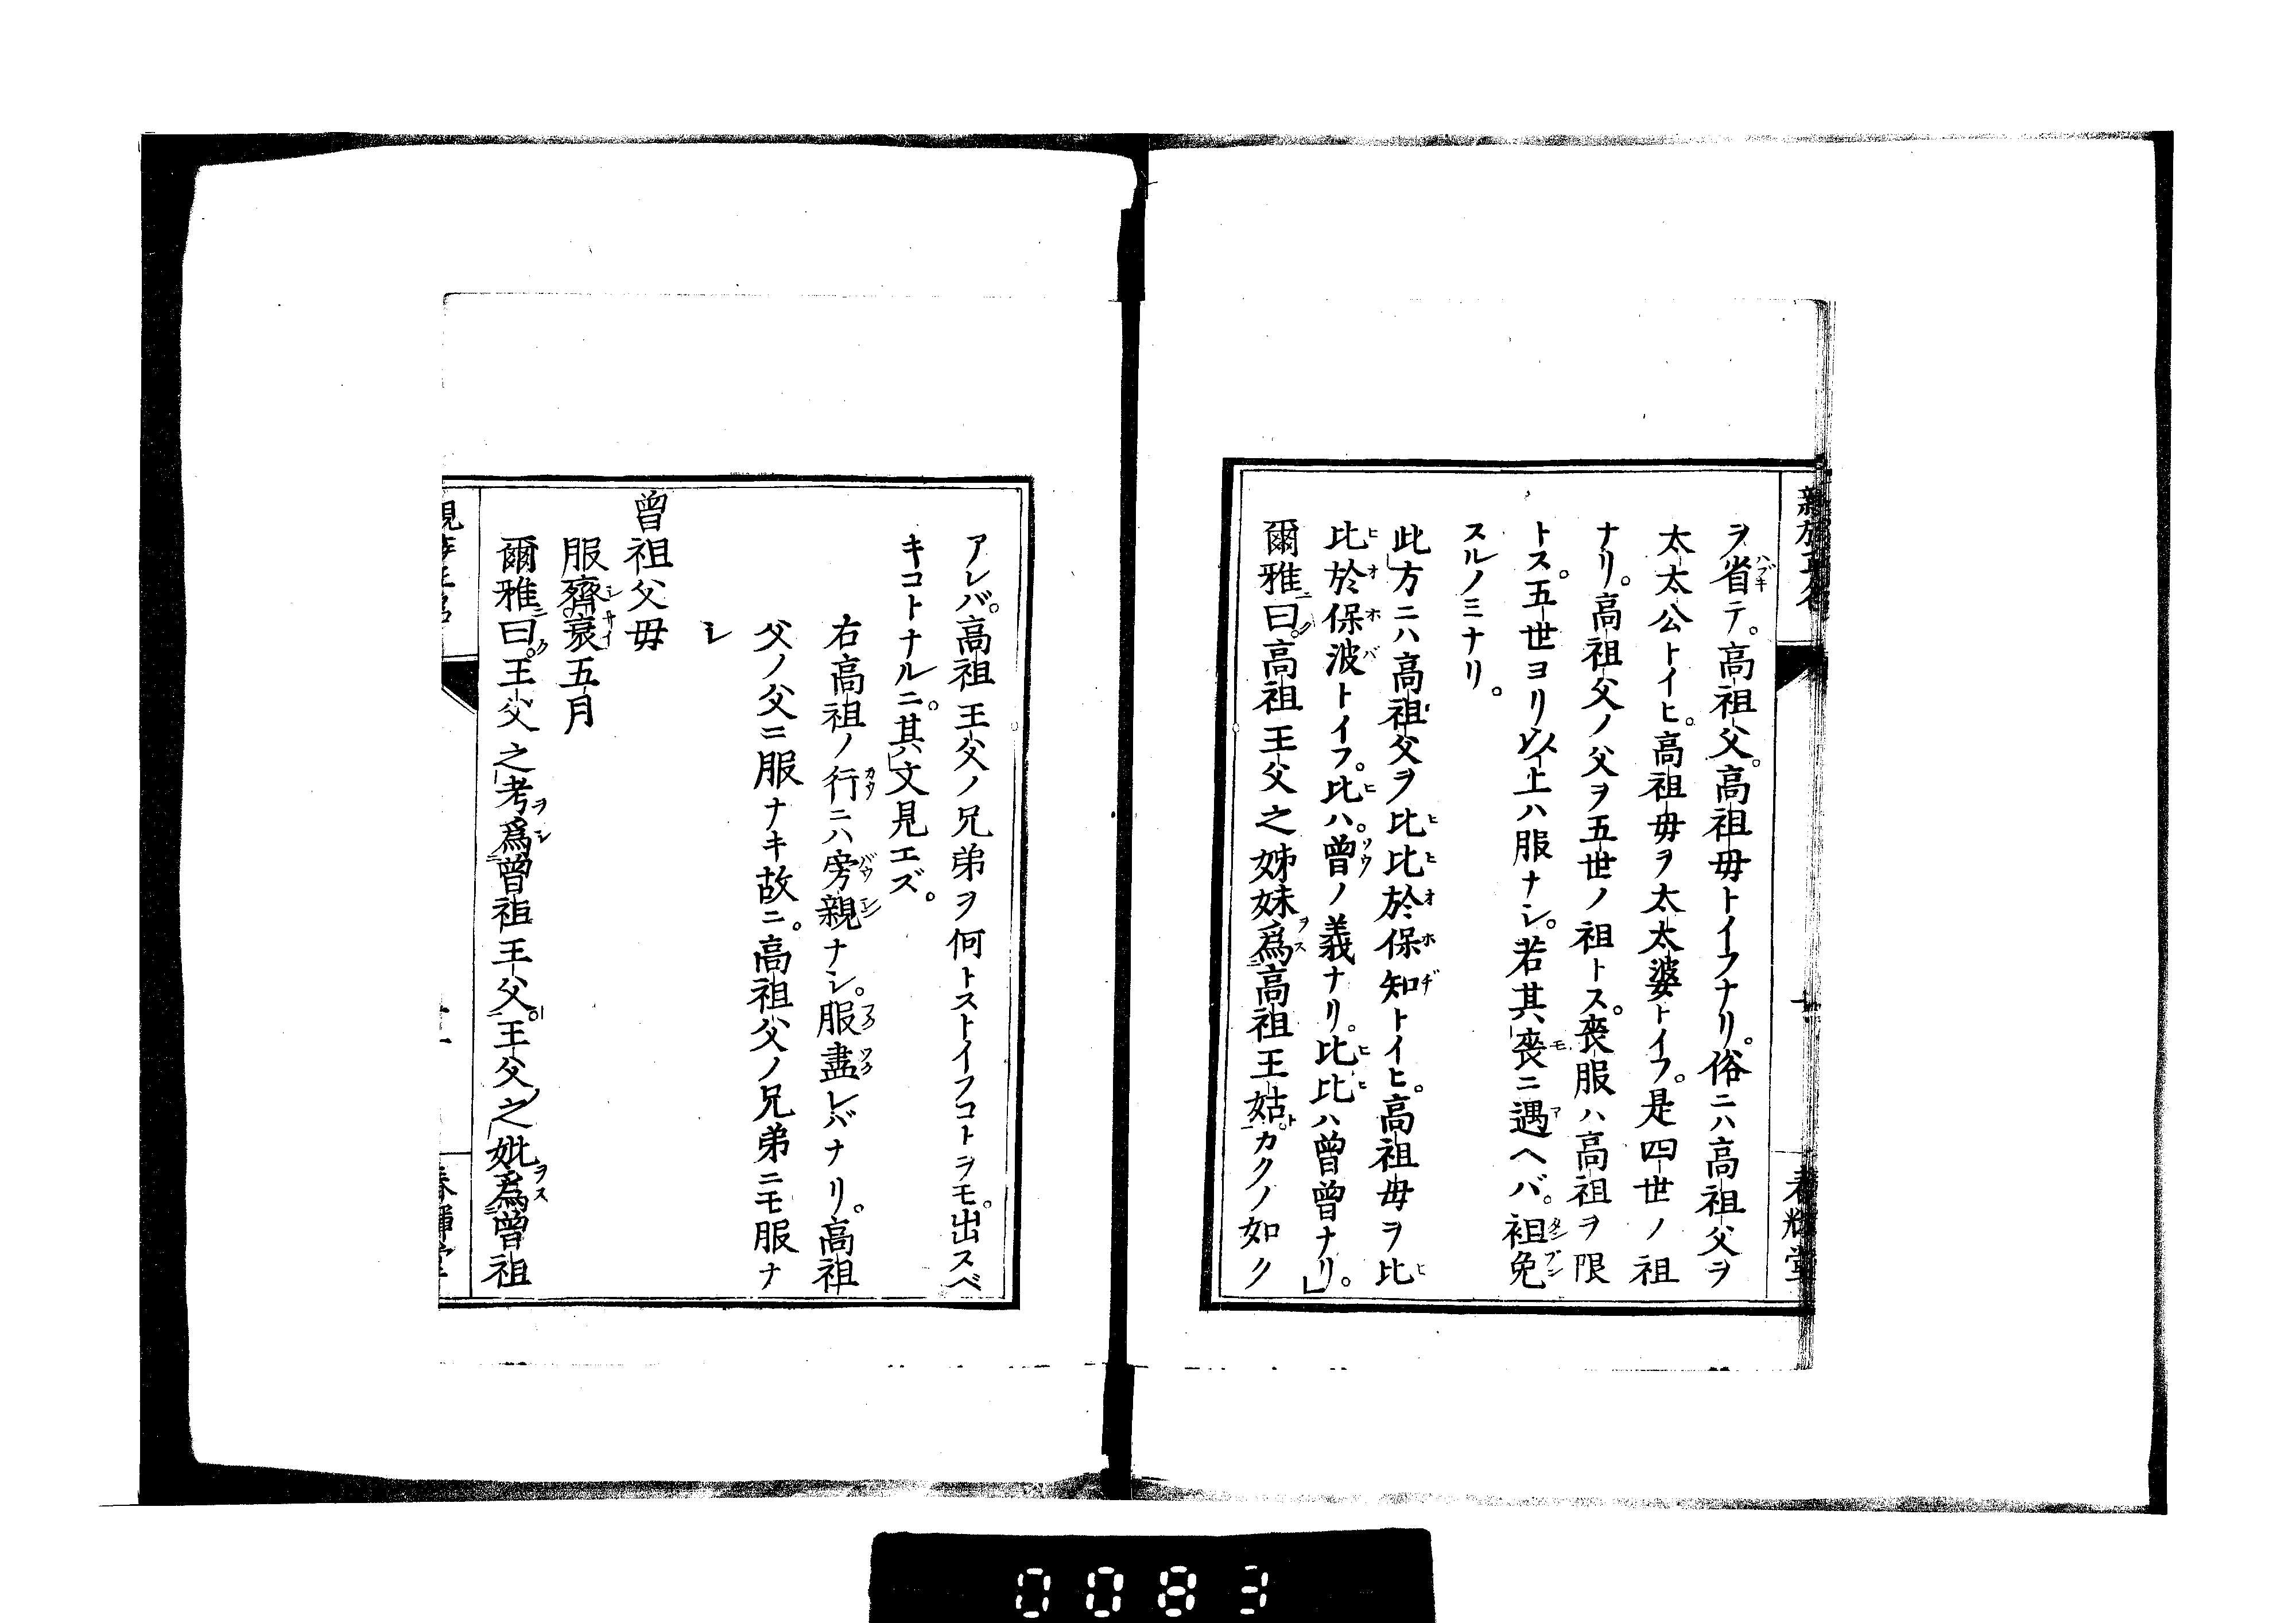 ヲ省テ。高祖父。高祖母トイフナリ。俗ニハ高祖父ヲ
太太公トイヒ。高祖母ヲ太太婆トイフ。是四世ノ祖
ナリ。高祖父ノ父ヲ五世ノ祖トス。喪服ハ高祖ヲ限
トス。五世ヨリ以上ハ服ナシ。若其喪ニ遇ヘバ。袒免
スルノミナリ。
此方ニハ高祖父ヲ比比於保知トイヒ。高祖母ヲ比
比於保波トイフ。比ハ。曾ノ義ナリ。比比ハ曾曾ナリ。
爾雅曰。高祖王父之姊妹爲高祖王姑。カクノ如ク
春輝堂
アレバ。高祖王父ノ兄弟ヲ何トストイフコトヲモ。出スベ
キコトナルニ。其文見エズ。
右高祖ノ行ニハ旁親ナシ。服盡レバナリ。高祖
父ノ父ニ服ナキ故ニ。高祖父ノ兄弟ニモ服ナ
シ
曾祖父母
服齊衰五月
爾雅曰。王父之考爲曾祖王父。王父之妣爲曾祖
0083